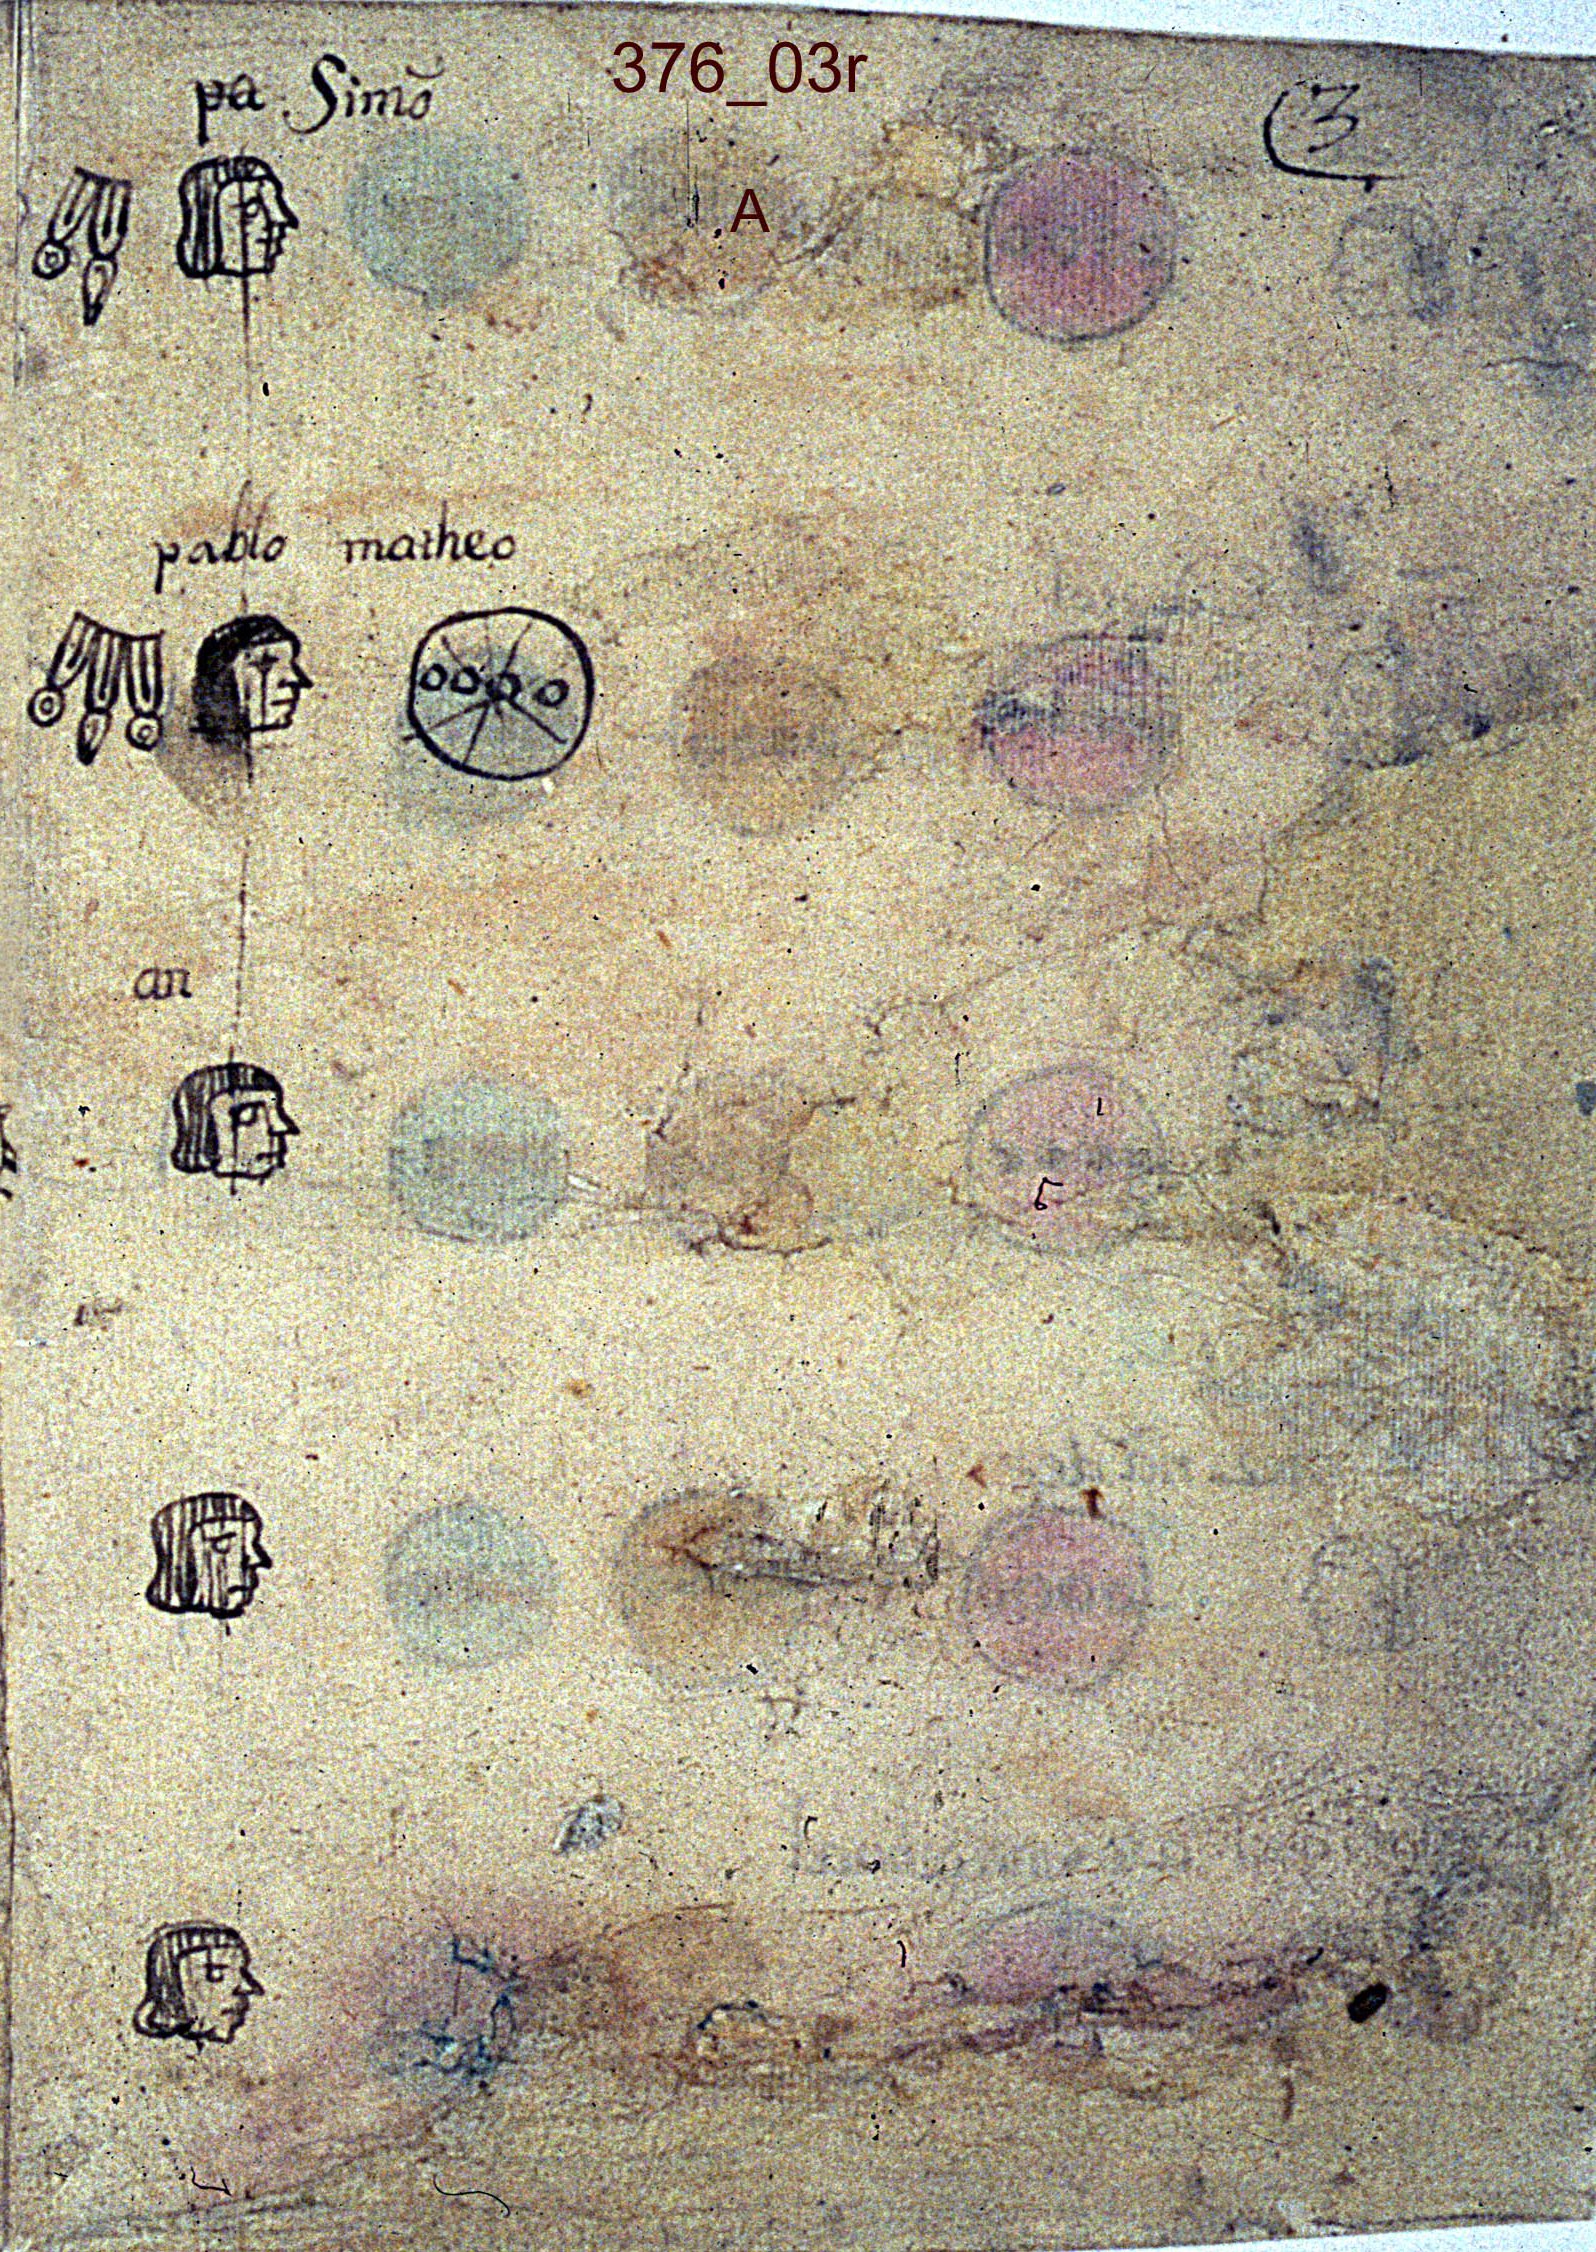 376_03r
pa Simõ
3
A
pablo matheo
an